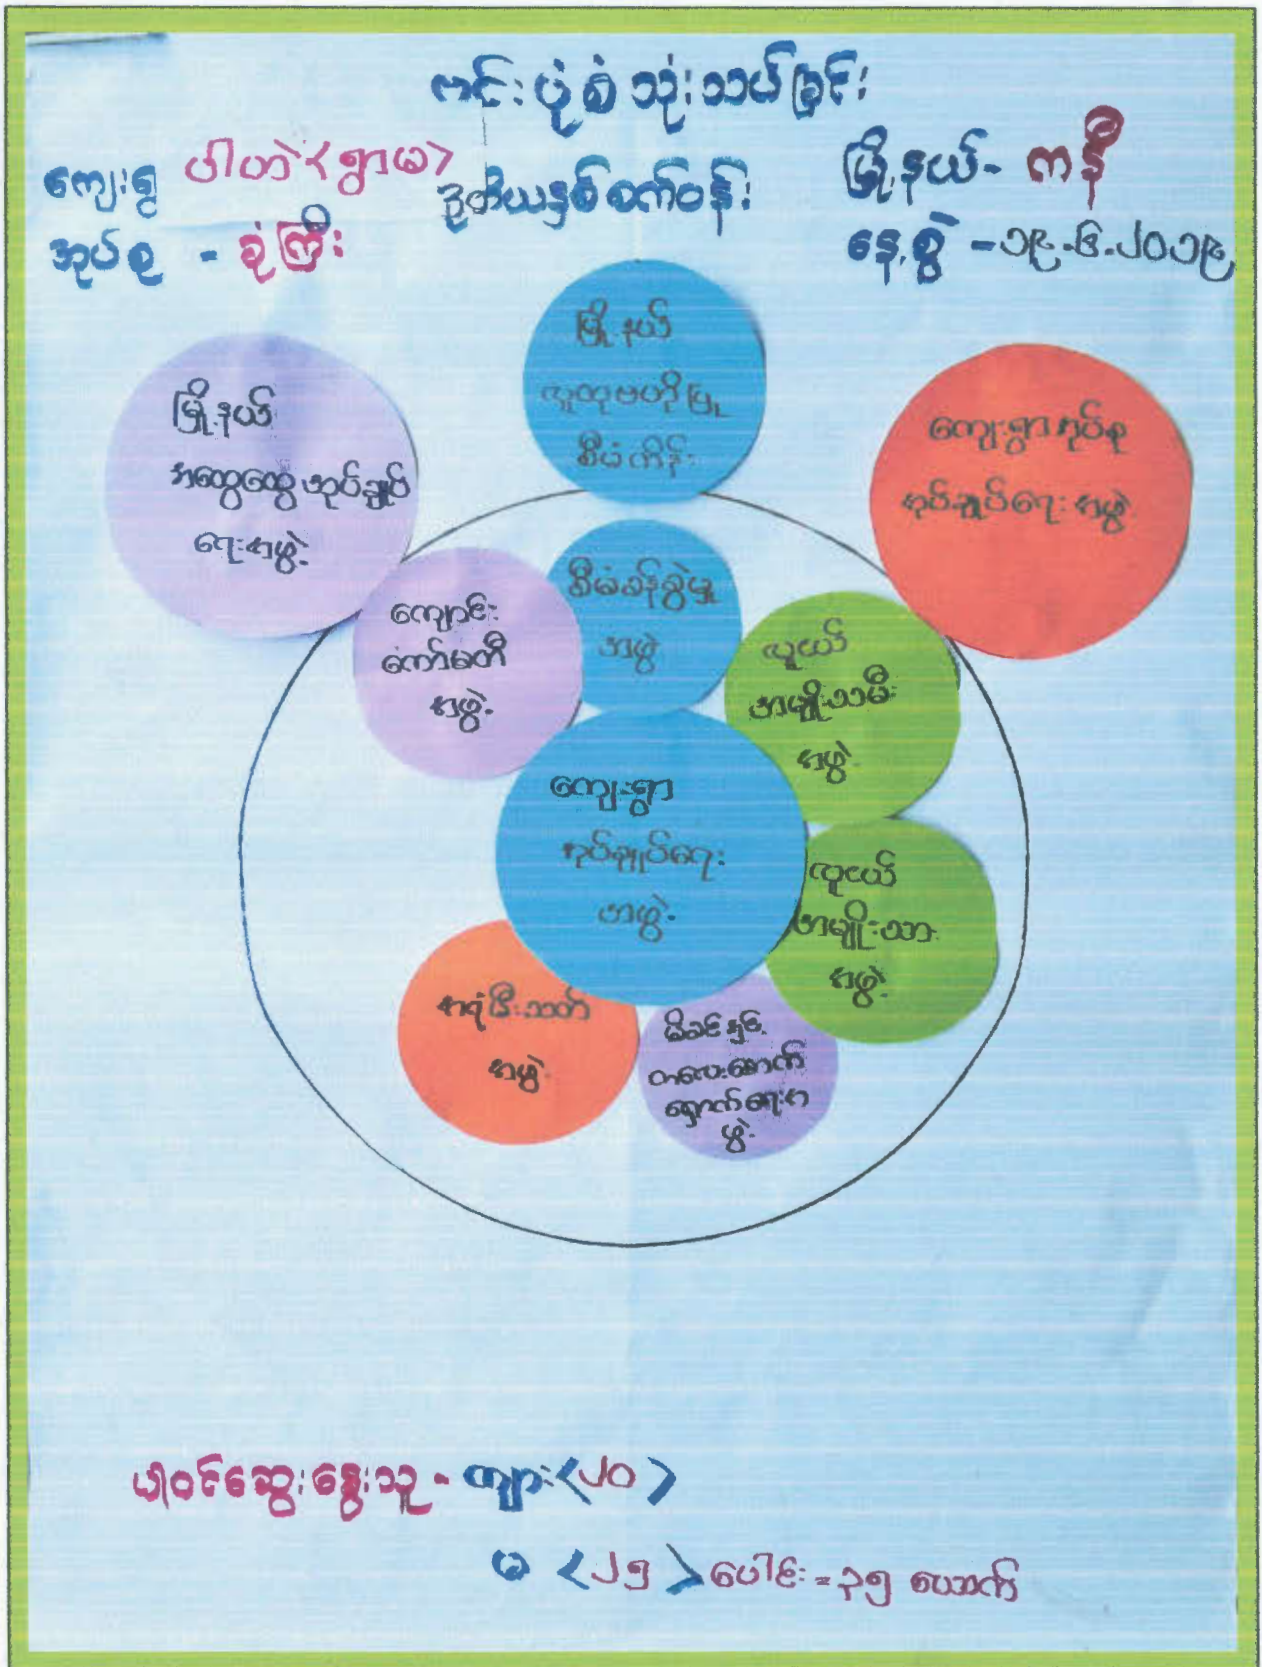 ဗင်းပုံစံသုံးသပ်ခြင်း
ကျေးရွာ ပါတဲ <ရွာမ>
ဒုတိယနှစ်စက်ဝန်း
မြို့နယ်- ကနီ
အုပ်စု - စုံကြီး
နေ့စွဲ - ၁၉.၆.၂၀၁၉
မြို့နယ်
လူထုဗဟိုပြု
စီမံကိန်း
မြို့နယ်
အထွေထွေအုပ်ချုပ်
ရေးအဖွဲ့
ကျေးရွာအုပ်စု
အုပ်ချုပ်ရေးအဖွဲ့
စီမံခန့်ခွဲမှု
အဖွဲ့
ကျောင်း
ကော်မတီ
အဖွဲ့
လူငယ်
အမျိုးသမီး
အဖွဲ့
ကျေးရွာ
အုပ်ချုပ်ရေး
အဖွဲ့
လူငယ်
အမျိုးသား
အဖွဲ့
အရံမီးသတ်
အဖွဲ့
မိခင်နှင့်
ကလေးစောက်
ရှောက်ရေးအ
ဖွဲ့
ပါဝင်ဆွေးနွေးသူ - ကျား <၂၀>
မ <၂၅> ပေါင်း = ၃၅ ယောက်